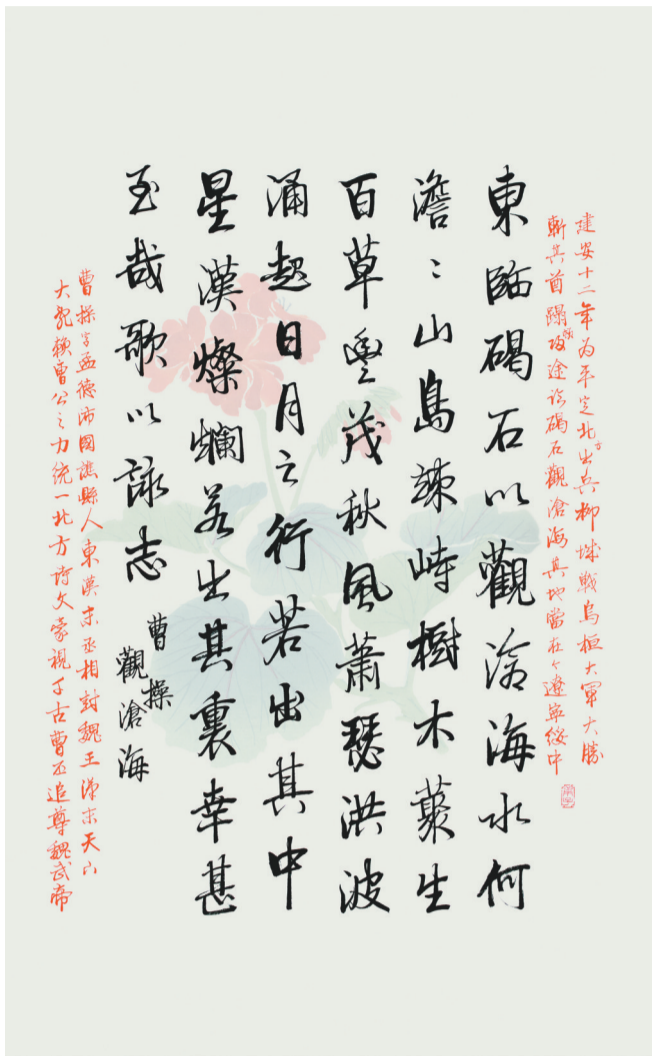 建安十二年为平定北方出兵柳城戰烏桓大軍大勝
斬其酋蹋頓攻途談碣石觀滄海其地當在今遼寧綏中
東臨碣石以觀滄海水何
澹〻山島竦峙樹木叢生
百草豐茂秋風蕭瑟洪波
涌起日月之行若出其中
星漢燦爛若出其裏幸甚
至哉歌以詠志
曹操
觀滄海
曹操字孟德沛國譙縣人東漢末丞相封魏王漢末天下
大亂賴曹公之力統一北方詩文豪視千古曹丕追尊魏武帝